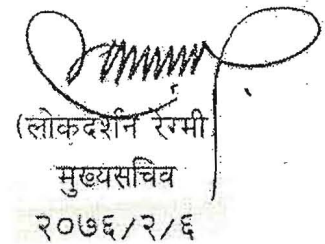 (लोकदर्शन रेग्मी
मुख्यसचिव
२०७६/२/६